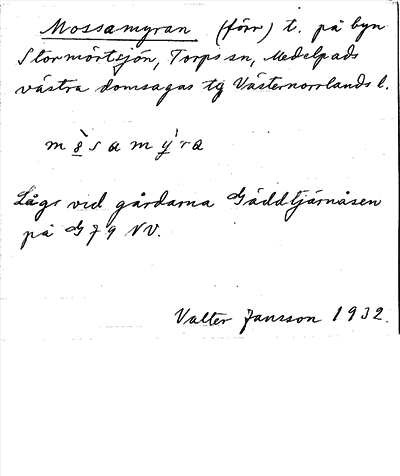 Mossamyran (förr) t. på byn
Stormörtsjön, Torps sn, Medelpads
västra domsagas tg Västernorrlands l.
m ò s a m ỳ r a
Lågr vid gårdarna Gäddtjärnåsen
på G 79 NV.
Valter Jansson 1932.